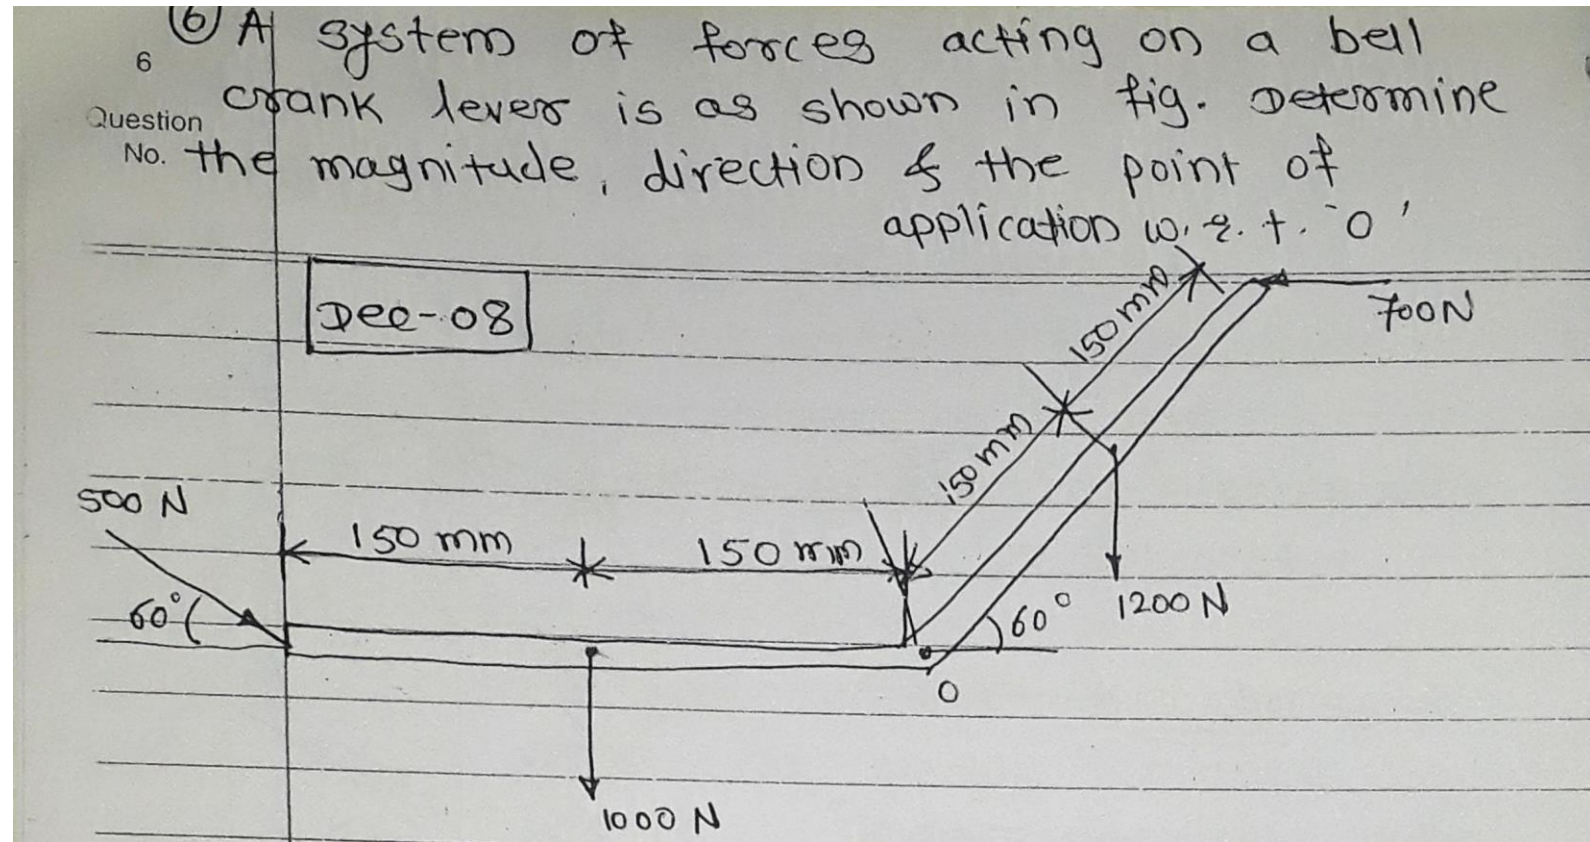 ⑥ A system of forces acting on a bell
6
crank lever is as shown in fig. Determine
Question
No.
the magnitude, direction & the point of
application w.r.t. 'O'
Dec-08
150 mm
700N
150 mm
500 N
150 mm
150 mm
60°
60°
1200 N
O
1000 N